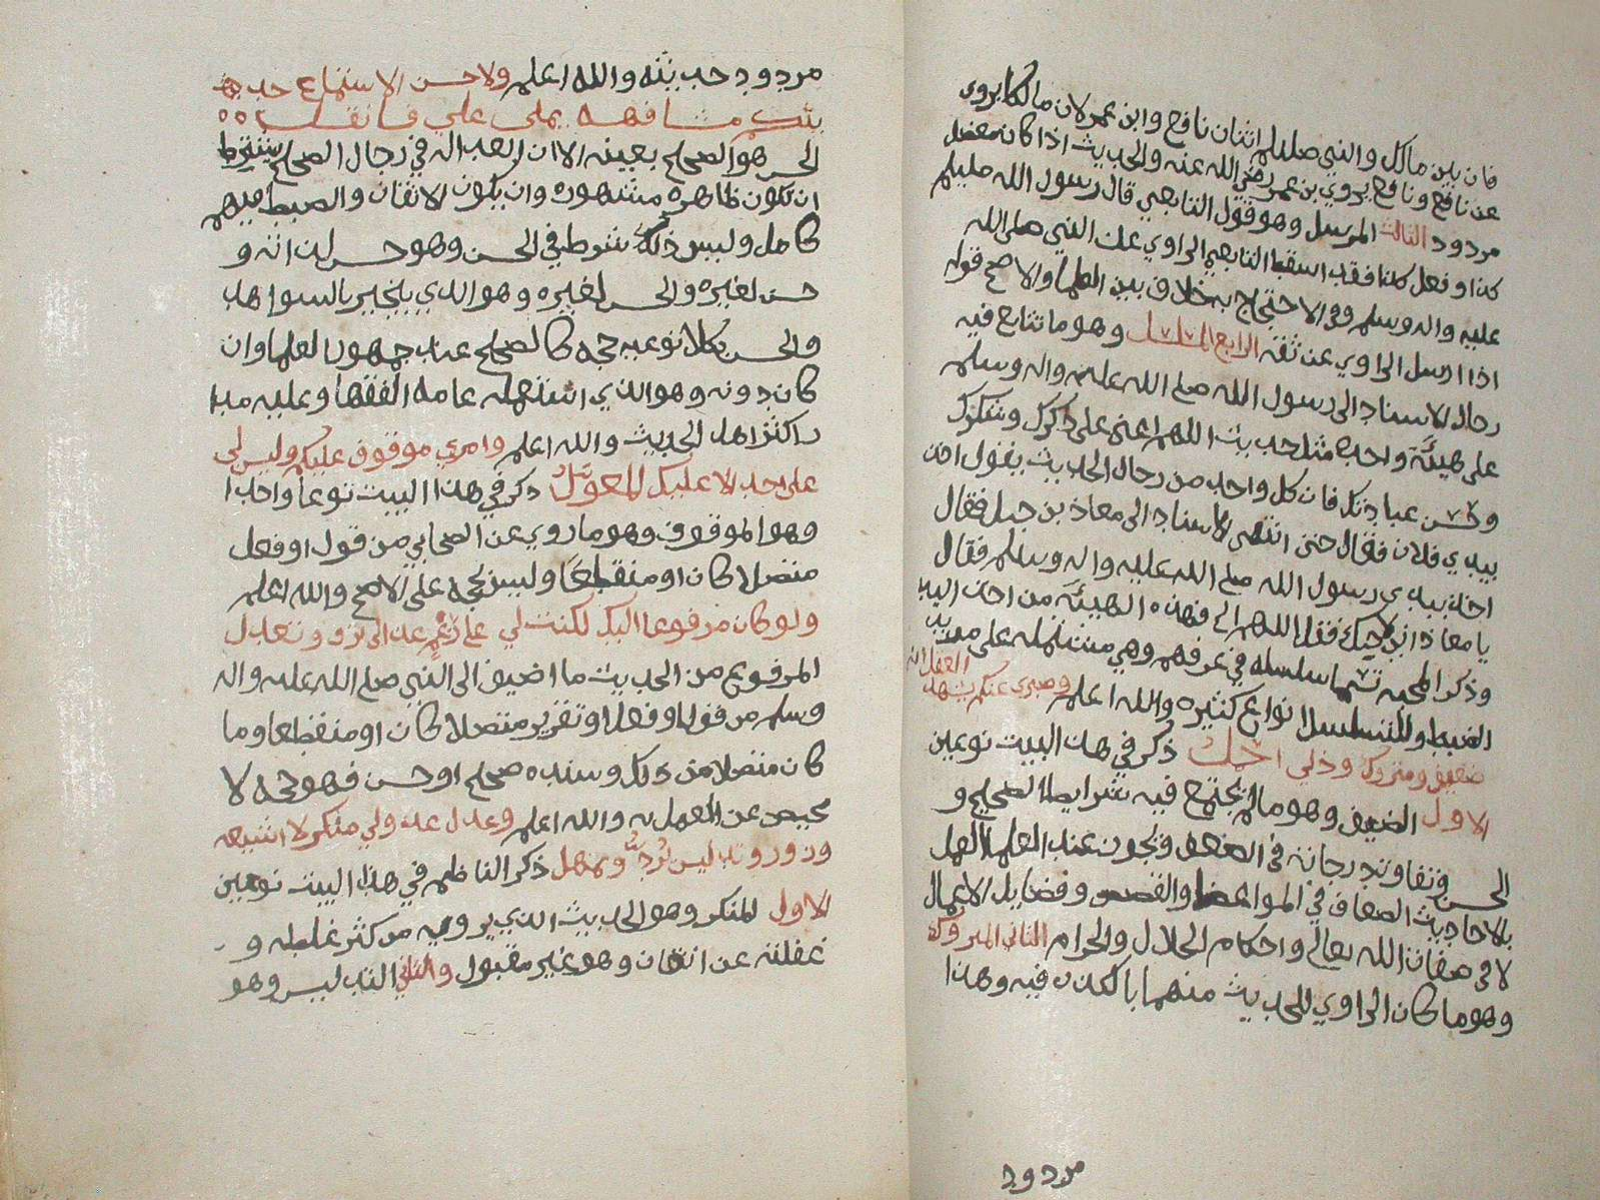 فان بين مالك والنبي صلعم اثنان نافع وابن عمر لان مالكا يروي
عن نافع ونافع يروي بن عمر رضي الله عنه والحديث اذا كان معضل
مردود الثالث المرسل وهو قول التابعي قال رسول الله صلعم
كذا او فعل كذا فقد اسقط التابعي الراوي عن النبي صلى الله
عليه واله وسلم وفي الاحتجاج به خلاف بين العلما والاصح قوله
اذا ارسل الراوي عن ثقه الرابع المسلسل وهو ما تتابع فيه
رجال الاسناد الى رسول الله صلى الله عليه واله وسلم
على هيئة واحدة مثل حديث اللهم اعني على ذكرك وشكرك
وحسن عبادتك فان كل واحد من رجال الحديث يقول اخذ
بيدي فلان فقال حتى انتهى الاسناد الى معاذ بن جبل فقال
اخذ بيدي رسول الله صلى الله عليه واله وسلم فقال
يا معاذ اني احبك فقل اللهم الى فهذه الهيئة من اخذ اليد
وذكر المحبه تسما سلسله في عرفهم وهي مشتمله على مزيد
الضبط وللتسلسل انواع كثيره والله اعلم وصبري عنكم يشهد العقل انه
ضعيف ومتروك وذلي اجمل ذكر في هذا البيت نوعين
الاول الضعيف وهو مالم يجتمع فيه شرايط الصحيح و
الحسن وتفاوتد رجاته في الضعف ويجوز عند العلما العمل
بالاحاديث الضعاف في المواعظ والقصص وفضايل الاعمال
لا في صفات الله تعالى واحكام الحلال والحرام الثاني المتروك
وهو ما كان الراوي للحديث متهما بالكذب فيه وهذا
مردود
مردود حديثه والله اعلم ولا حسن الا استماع حديثكم
مشافهة يملى علي فانقل
الحسن هو الصحيح بعينه الا ان العداله في رجال الصحيح يشترط
ان تكون ظاهره مشهوره وان يكون الاتقان والضبط فيهم
كامل وليس ذلك شرط في الحسن وهو حسن لذاته و
حسن لغيره والحسن لغيره وهو الذي ينجبر بالشواهد
والحسن بكلا نوعيه حجه كالصحيح عند جمهور العلما وان
كان دونه وهو الذي استعمله عامة الفقها وعليه مدا
ر اكثر اهل الحديث والله اعلم وامري موقوف عليكم وليس لي
على احد الا عليك المعول ذكر في هذا البيت نوعا واحدا
وهو الموقوف وهو ما روي عن الصحابي من قول او فعل
متصلا كان او منقطعا وليس بحجه على الاصح والله اعلم
ولو كان مرفوعا اليك لكنت لي على رغم عذالي ترق وتعدل
المرفوع من الحديث ما اضيف الى النبي صلى الله عليه واله
وسلم من قول او فعل او تقرير متصلا كان او منقطعا وما
كان متصلا من ذلك وسنده صحيح او حسن فهو حجه لا
محيص عن العمل به والله اعلم وعذل عذولي منكر لا اسيغه
وزور وتدليس يرد ويهمل ذكر الناظم في هذا البيت نوعين
الاول المنكر وهو الحديث الذي يرويه من كثر غلطه و
غفلته عن اتقان وهو غير مقبول والثاني التدليس وهو